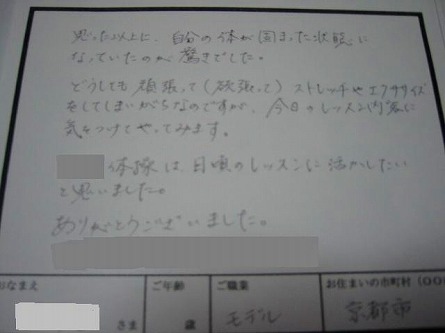 思った以上に、自分の体が固まった状態に
なっていたのが驚きでした。
どうしても頑張って(欲張って)ストレッチやエクササイズ
をしてしまいがちなのですが、今日のレッスン内容に
気をつけてやってみます。
体操は日頃のレッスンに活かしたい
と思いました。
ありがとうございました。
おなまえ ご年齢 ご職業 お住まいの市町村(〇〇
さま 歳 モデル 京都市